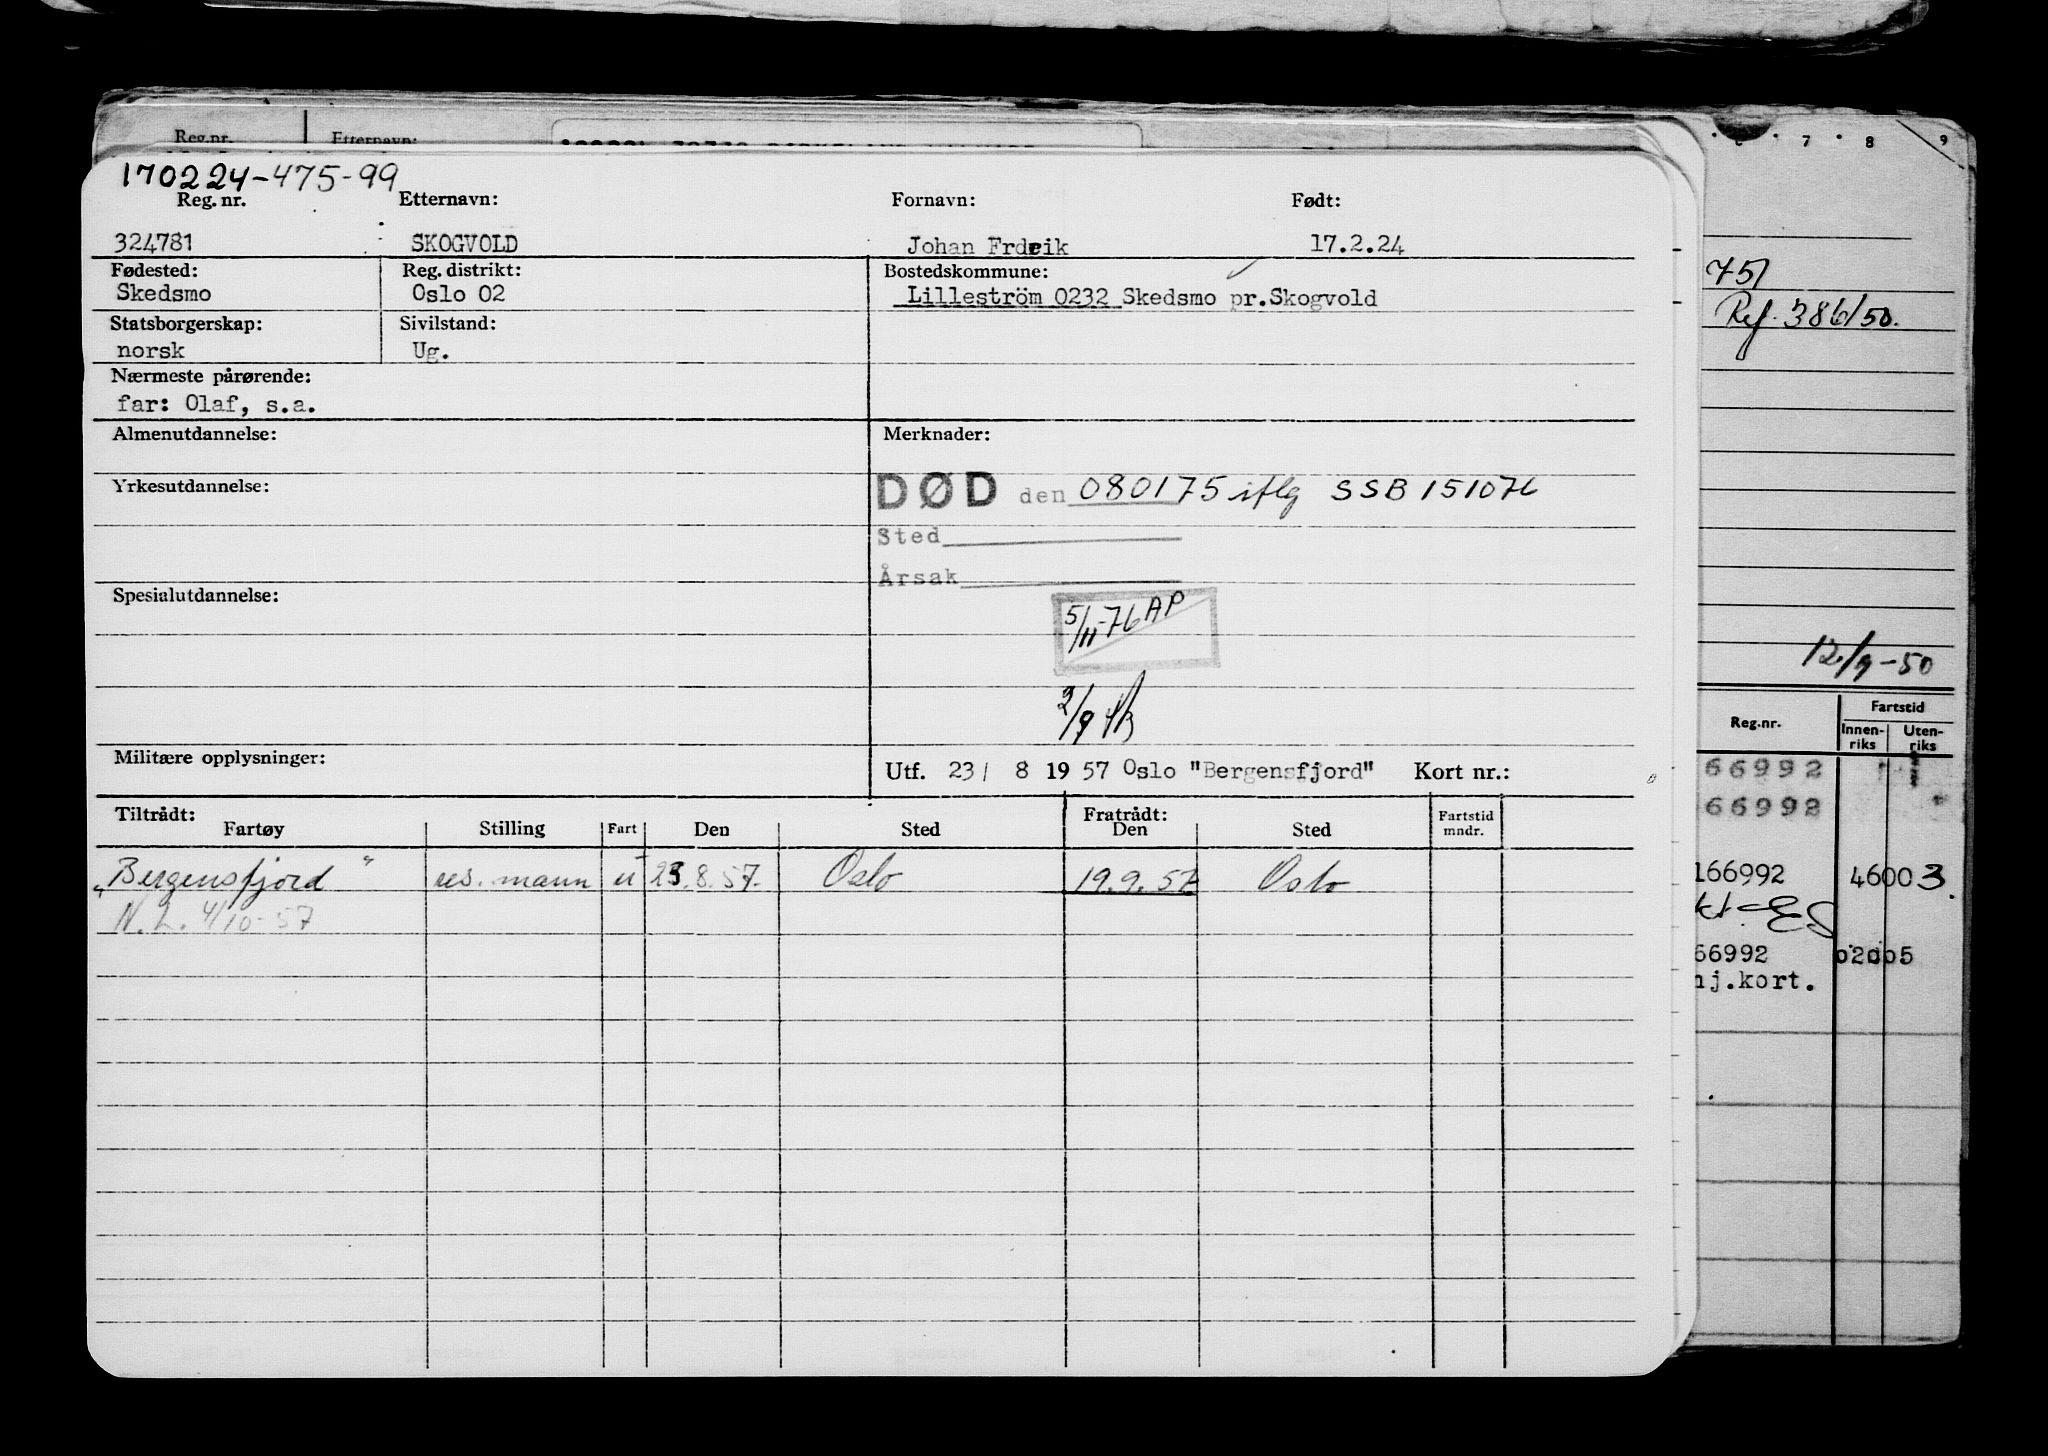 Reg.nr. Etternavn:
7 8 9
170224-475-99
Reg. nr. Etternavn: Fornavn: Født:
324781 SKOGVOLD Johan Frdeik 17.2.24
Fødested: Reg. distrikt: Bostedskommune:
Skedsmo Oslo 02 Lilleström 0232 Skedsmo pr.Skogvold
Statsborgerskap: Sivilstand:
norsk Ug.
Nærmeste pårørende:
far: Olaf, s.a.
Almenutdannelse: Merknader:
Yrkesutdannelse: DØD den 080175 iflg SSB 151076
Sted
Årsak
Spesialutdannelse:
5/11-76 AP
2/9
Militære opplysninger: Utf. 23/ 8 19 57 Oslo "Bergensfjord" Kort nr.:
Tiltrådt: Fratrådt:
Fartøy Stilling Fart Den Sted Den Sted Fartstid mndr.
"Bergensfjord" res. mann u 23.8.57. Oslo 19.9.57 Oslo
N.L. 4/10-57
751
Ref. 386/50.
12/9-50
Reg.nr. Fartstid
Innen-riks Uten-riks
66992
66992
166992 46003.
66992 02005
nj.kort.